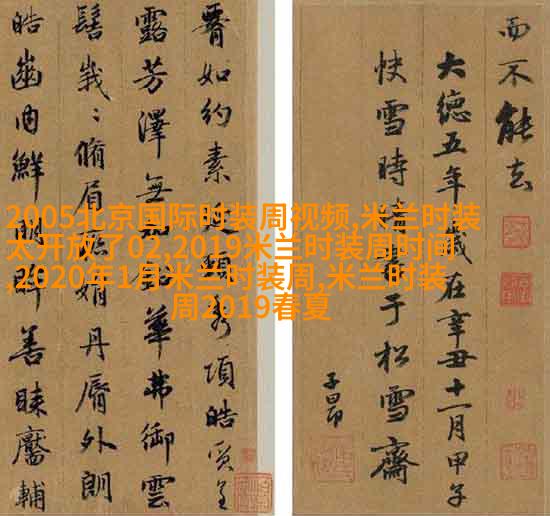 2005北京国际时装周视频,米兰时装
太开放了02,2019米兰时装周时间
,2020年1月米兰时装周,米兰时装
周2019春夏
如約素延頸秀項皓質呈
露芳澤無鉛華弗御雲
髻峩〻脩眉聯娟丹脣外朗
皓齒內鮮明眸善睞靨輔
而不能去
大德五年歲在辛丑十一月甲子
快雪時晴書于松雪齋
子昂